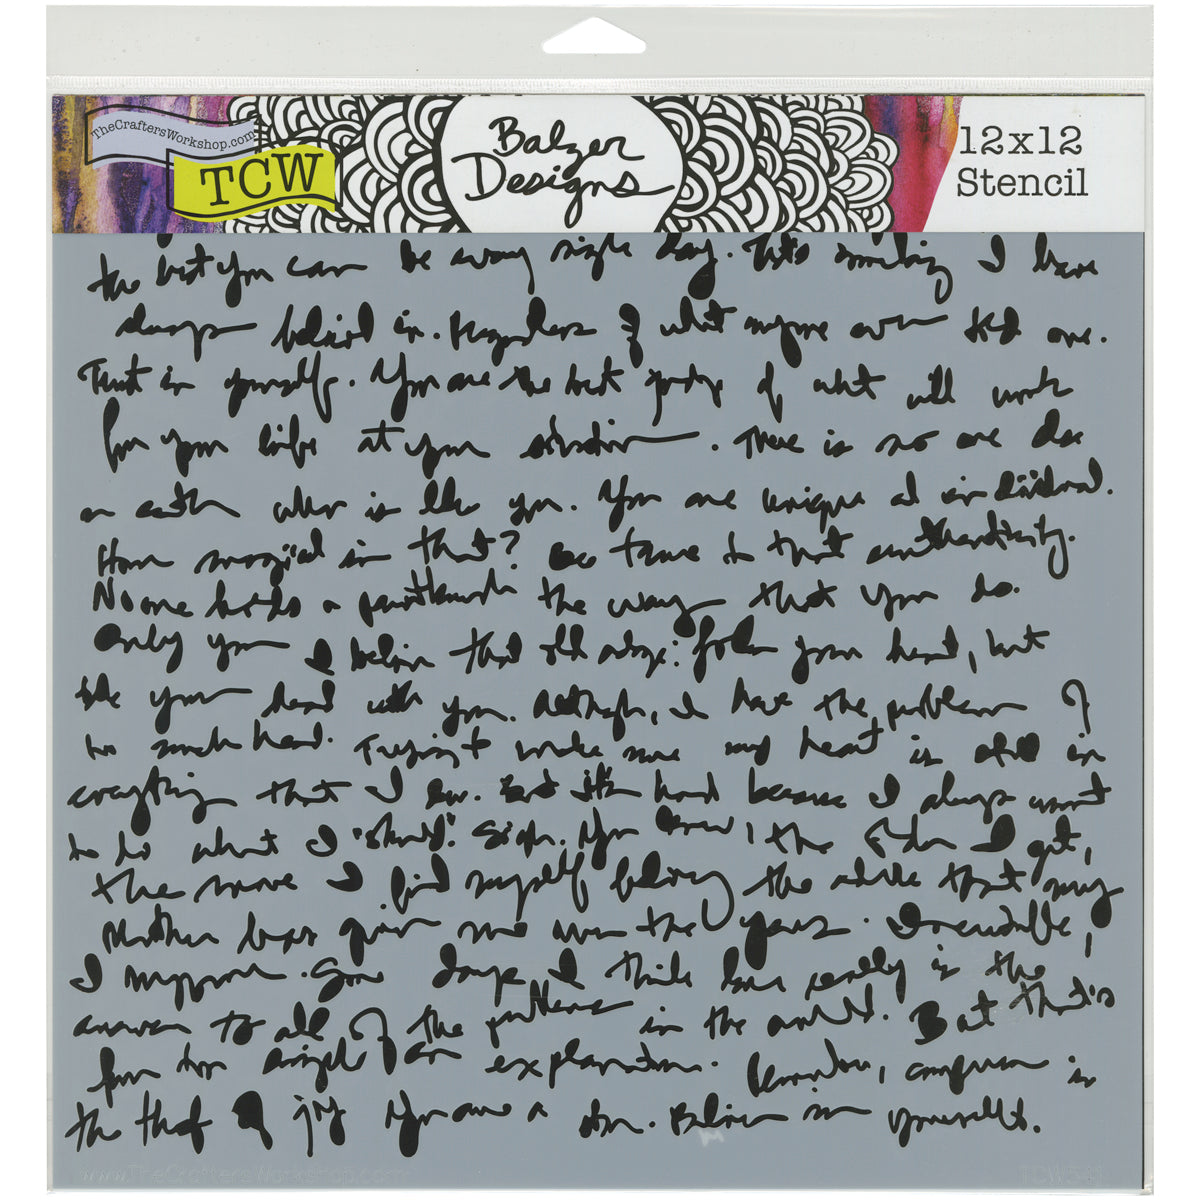 TheCraftersWorkshop.com
TCW
Balzer
Designs
12x12
Stencil
the best you can be every single day. It's something I have
always believed in. Regardless of what anyone ever told me.
Trust in yourself. You are the best judge of what will work
for your life at your . There is no one else
on earth who is like you. You are unique and individual.
How magical is that? be true to that authenticity.
No one holds a paintbrush the way that you do.
Only you I believe that old adage: follow your heart, but
take your head with you. Although, I have the problem of
too much head. Trying to make sure my heart is also in
everything that I do. But it's hard because I always want
to do what I "should". Sigh. You know, the older I get,
the more I find myself believing the advice that my
Mother has given me over the years. Incredible,
I suppose. Some days I think love really is the
answer to all of the problems in the world. But that's
far too simple of an explanation. Remember, comparison is
the thief of joy You are a star. Believe in yourself.
www.TheCraftersWorkshop.com
TCW541